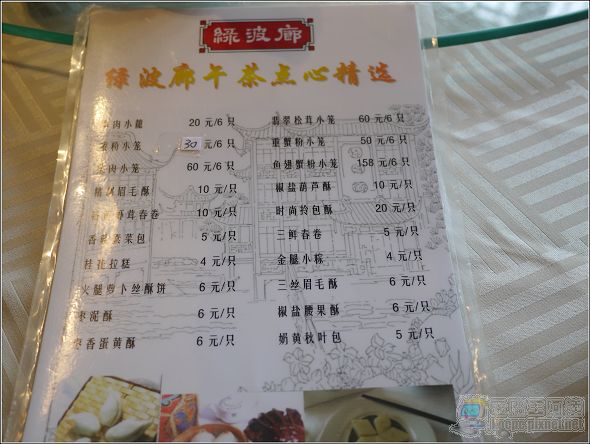 綠波廊
绿波廊午茶点心精选
肉小籠 20 元/6 只
粉小笼 30 元/6 只
肉小笼 60 元/6 只
眉毛酥 10 元/只
茸春卷 10 元/只
香 菜包 5 元/只
桂花拉糕 4 元/只
火腿萝卜丝酥饼 6 元/只
枣泥酥 6 元/只
香蛋黄酥 6 元/只
翡翠松茸小笼 60 元/6 只
重蟹粉小笼 50 元/6 只
鱼翅蟹粉小笼 158 元/6 只
椒盐葫芦酥 10 元/只
时尚羚包酥 20 元/只
三鲜春卷 5 元/只
金腿小粽 4 元/只
三丝眉毛酥 6 元/只
椒盐腰果酥 6 元/只
奶黄秋叶包 5 元/只